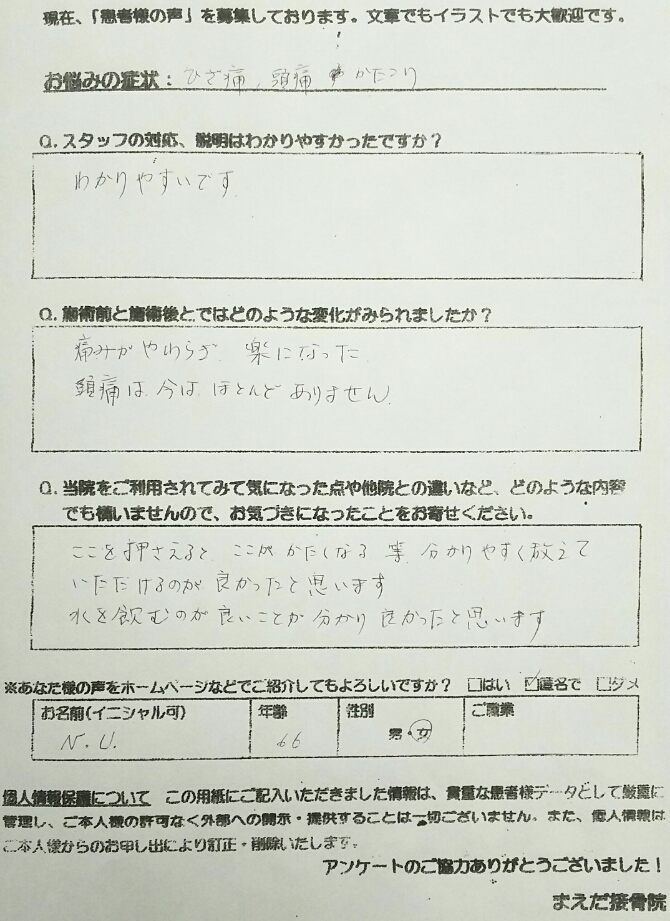 現在、「患者様の声」を募集しております。文章でもイラストでも大歓迎です。
お悩みの症状: ひざ痛、頭痛 かたこり
Q.スタッフの対応、説明はわかりやすかったですか？
わかりやすいです
Q.施術前と施術後とではどのような変化がみられましたか？
痛みがやわらぎ 楽になった
頭痛は 今は ほとんど ありません
Q.当院をご利用されてみて気になった点や他院との違いなど、どのような内容
でも構いませんので、お気づきになったことをお寄せください。
ここを押さえると ここが かたくなる 等 分かりやすく教えて
いただけるのが 良かったと思います
水を飲むのが良いことが 分かり 良かったと思います
※あなた様の声をホームページなどでご紹介してもよろしいですか？ □はい ☑匿名で □ダメ
お名前(イニシャル可) 年齢 性別 ご職業
N.U. 66 男・女
個人情報保護について この用紙にご記入いただきました情報は、貴重な患者様データとして厳重に
管理し、ご本人様の許可なく外部への開示・提供することは一切ございません。また、個人情報は
ご本人様からのお申し出により訂正・削除いたします。
アンケートのご協力ありがとうございました！
まえだ接骨院